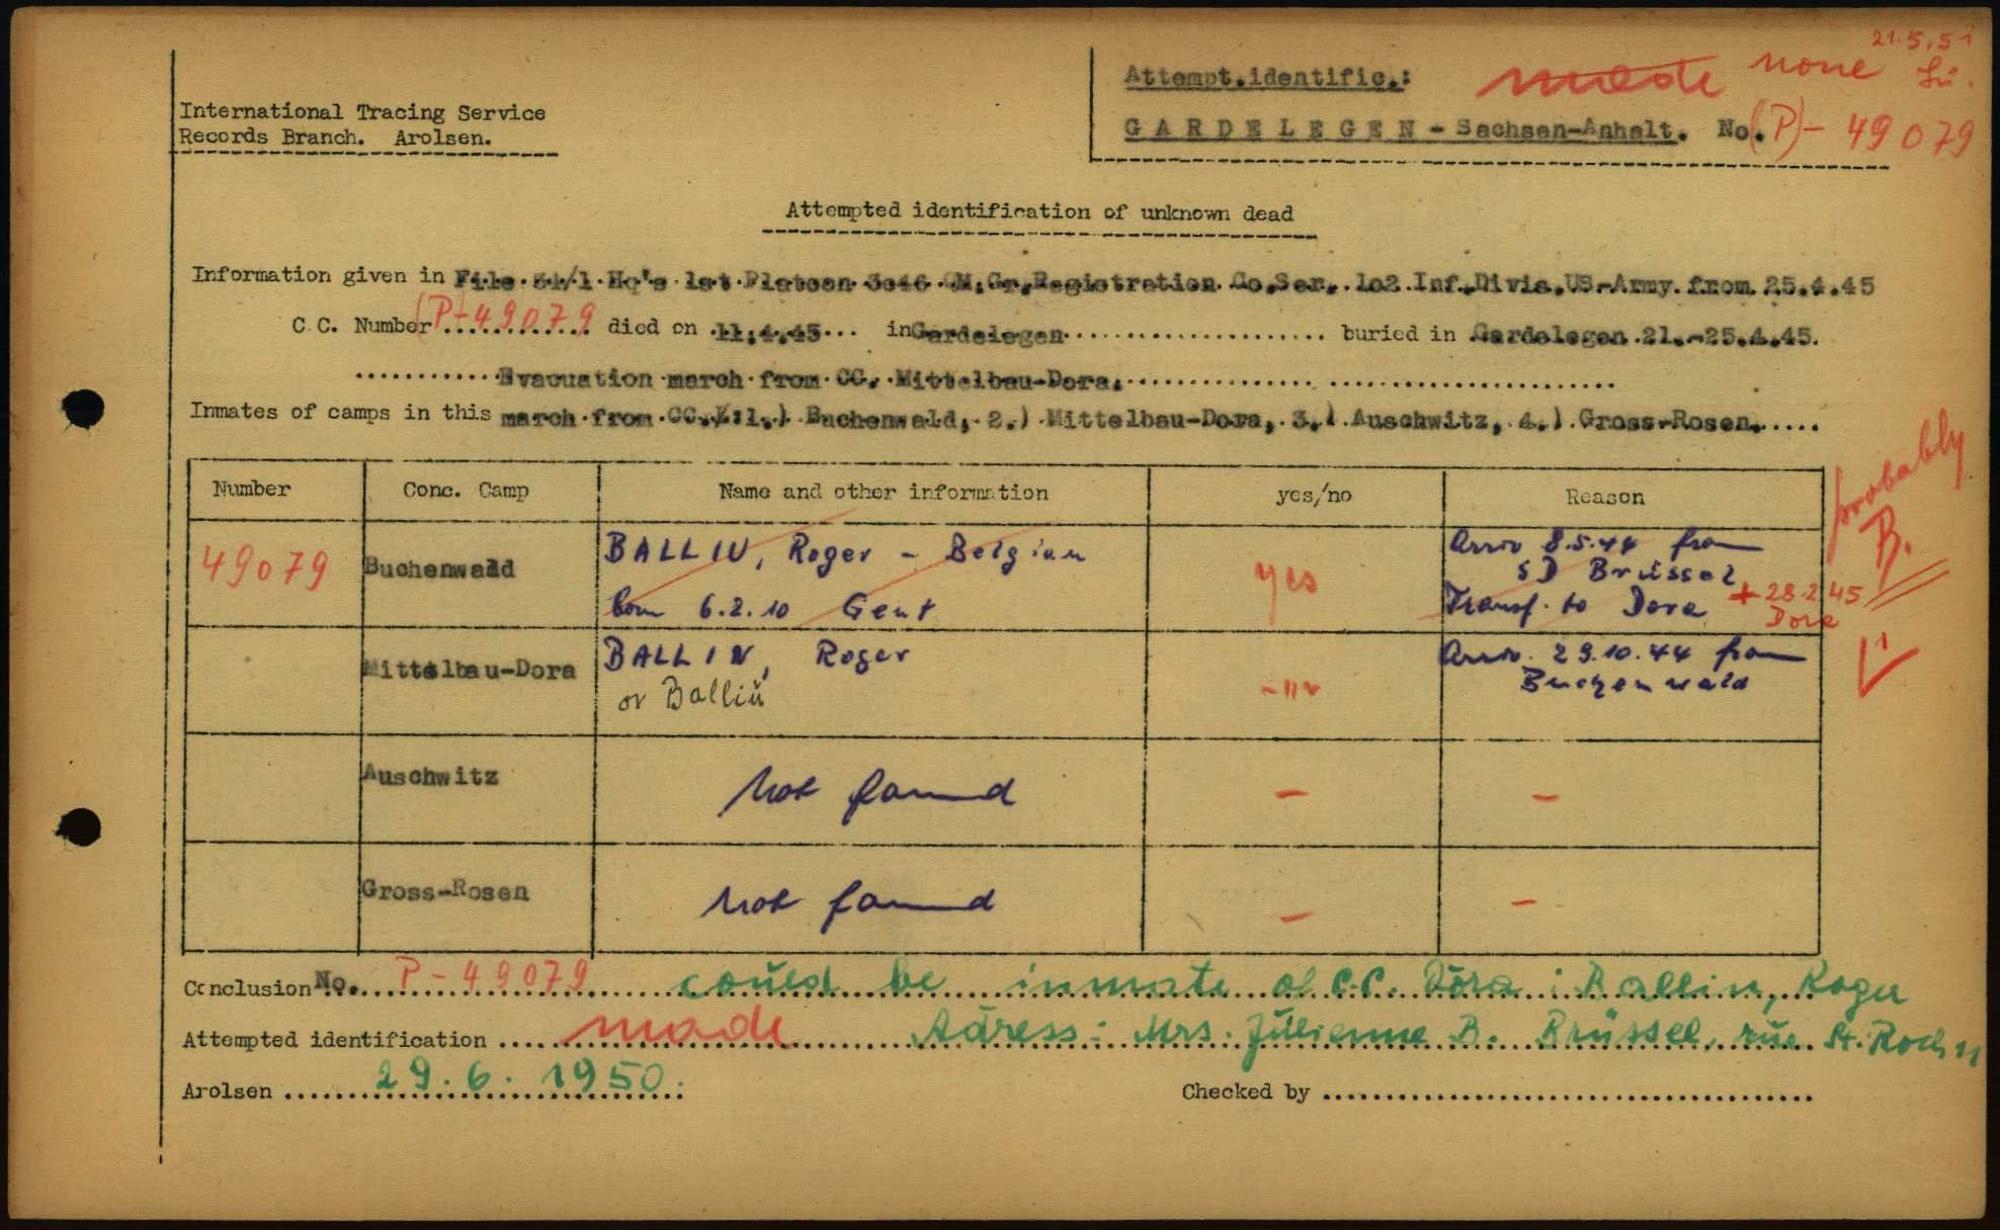 21.5.51
Attempt.identific.: made none
International Tracing Service
Records Branch. Arolsen.
GARDELEGEN - Sachsen-Anhalt. No.(P)- 49079
Attempted identification of unknown dead
Information given in File 31/1 Hq's 1st Platoon 3046 QM.Gr.Registration Co.Ser. 102 Inf.Divis.US-Army from 25.4.45
C.C. Number (P-49079 died on 11.4.45 in Gardelegen buried in Gardelegen 21.-25.4.45.
Evacuation march from CC. Mittelbau-Dora.
Inmates of camps in this march from CC. 1.) Buchenwald, 2.) Mittelbau-Dora, 3.) Auschwitz, 4.) Gross-Rosen.
probably
B.
Number Conc. Camp Name and other information yes/no Reason
49079 Buchenwald BALLIU, Roger - Belgian yes Arriv 8.5.44 from
SD Brüssel
born 6.2.10 Gent Transf. to Dora + 28.2.45
Dora
Mittelbau-Dora BALLIN, Roger -"- Arriv. 29.10.44 from
or Balliŭ Buchenwald
Auschwitz not found - -
Gross-Rosen not found - -
Conclusion No. P-49079 coŭld be inmate of C.C. Dora: Ballin, Roger
Attempted identification made Adress: Mrs. Jŭlienne B. Brüssel, rŭe St. Roch 11
Arolsen 29.6.1950. Checked by